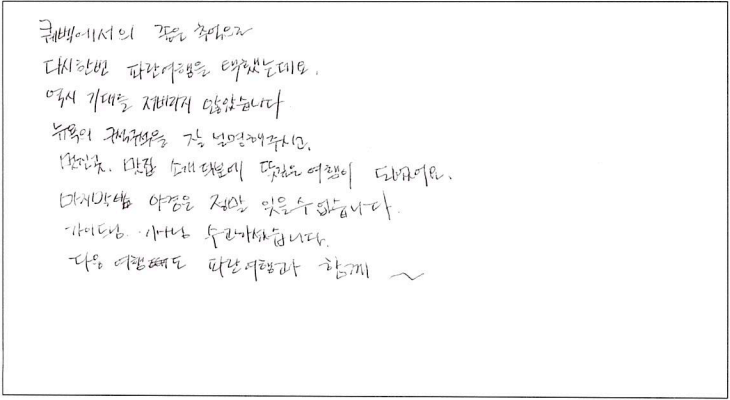 퀘백에서의 좋은 추억으로
다시한번 파란여행을 택했는데요.
역시 기대를 저버리지 않았습니다
뉴욕의 구석구석을 잘 설명해주시고,
멋진곳, 맛집 소개 덕분에 뜻깊은 여행이 되었어요.
마지막밤 야경은 정말 잊을수 없습니다.
가이드님 기사님 수고하셨습니다.
다음 여행때도 파란여행과 함께 ~